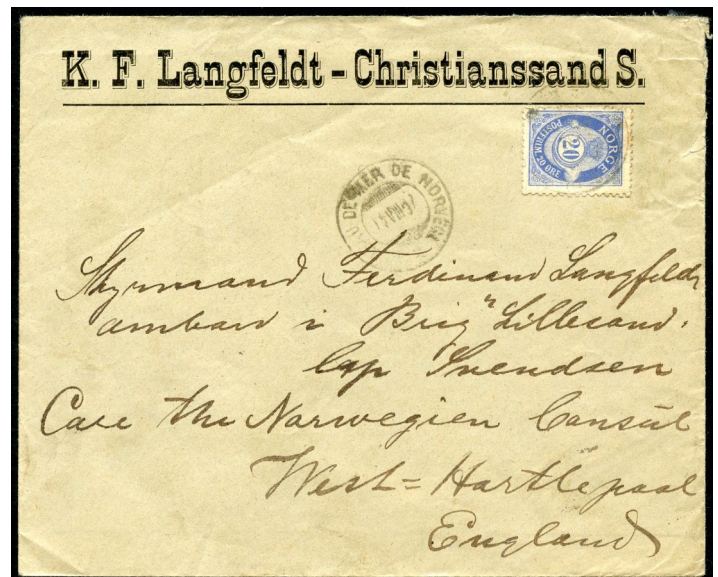 K. F. Langfeldt - Christianssand S.
NORGE
POSTFRIM
20
20 ØRE
DE MER DE NORVEGE
Styrmand Ferdinand Langfeldt
ombord i Brig "Lillesand.
Cap Svendsen
Care the Norwegien Consul
West = Hartlepool
England